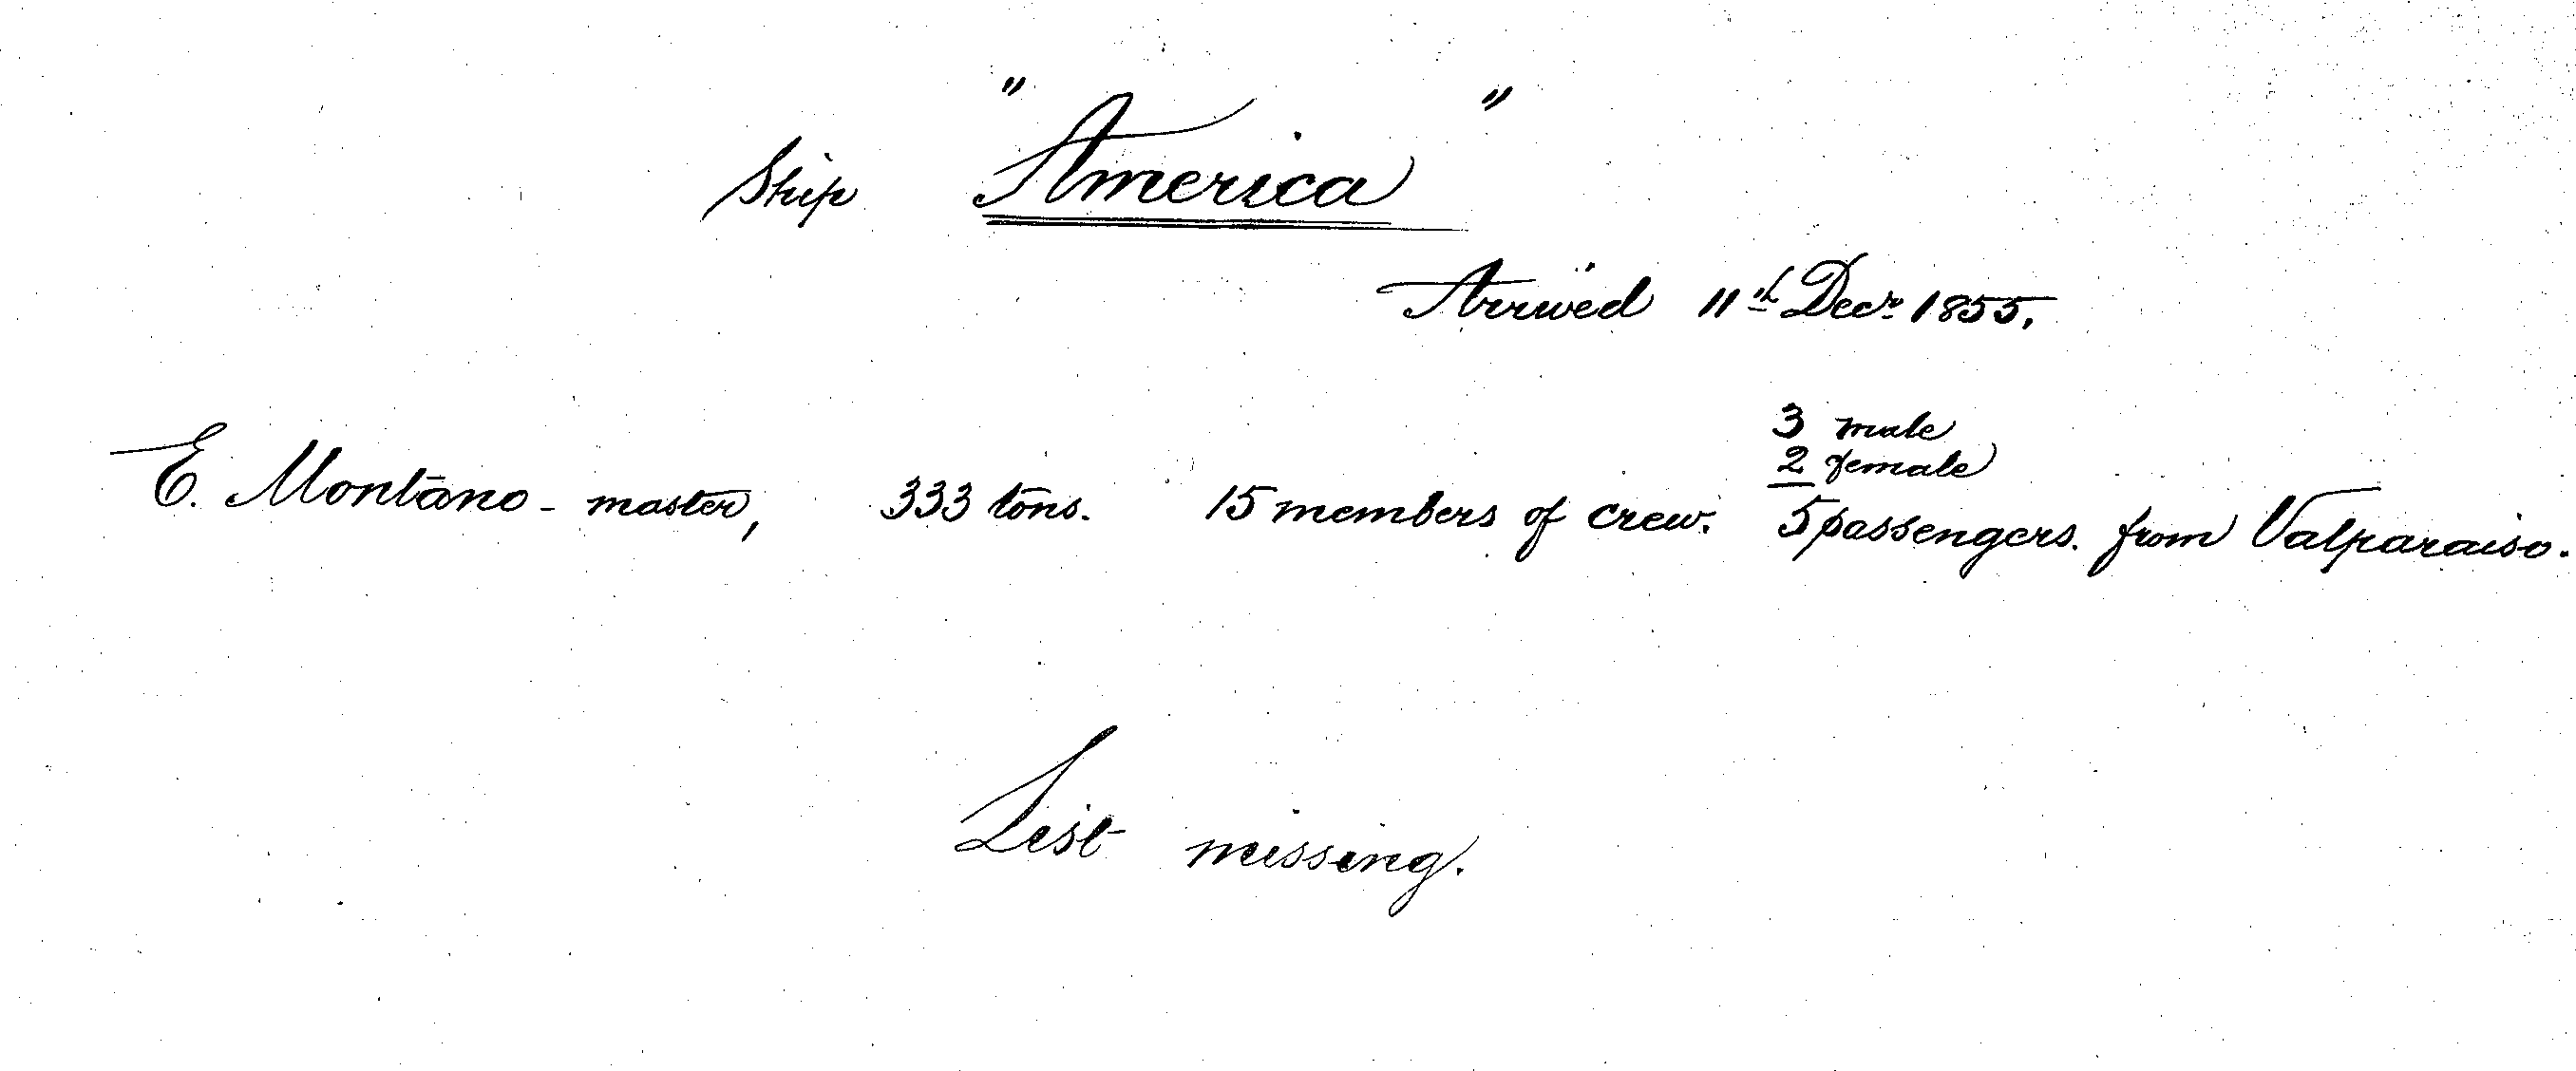 Ship "America"
Arrived 11th Decr 1855.
3 male
2 female
E. Montano - master, 333 tons. 15 members of crew. 5 passengers. from Valparaiso.
List missing.